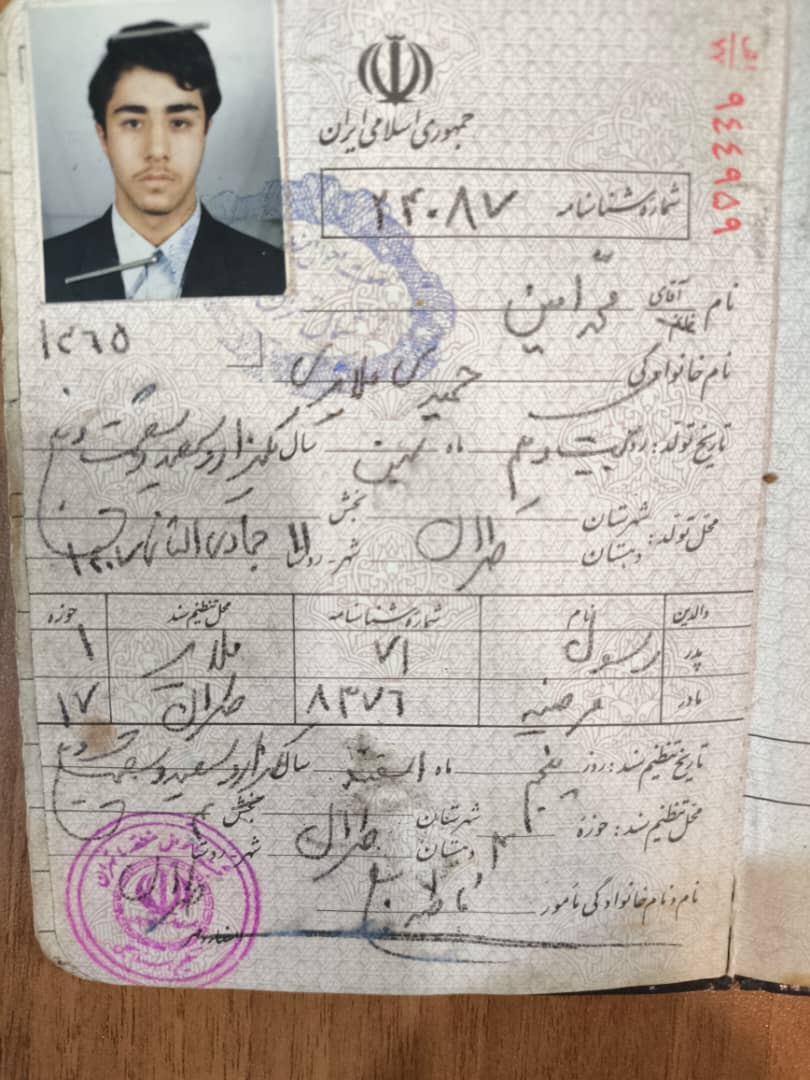 الف
۷۷
۹۴۴۹۵۹
جمهوری اسلامی ایران
شماره شناسنامه ۲۴۰۸۷
نام آقای محمد امین
خانم
۱۳۶۵
نام خانوادگی حمیدی ملایری
تاریخ تولد: روز بیست و نهم ماه بهمن سال یکهزار و سیصد و شصت و
محل تولد: شهرستان تهران بخش
دهستان شهر - روستا جمادی الثانی
والدین نام شماره شناسنامه محل تنظیم سند حوزه
پدر رسول ۷۱ ملایر ۱
مادر مرضیه ۸۳۷۶ تهران ۱۷
تاریخ تنظیم سند: روز پنجم ماه اسفند سال یکهزار و سیصد و شصت و
محل تنظیم سند: حوزه ۳ شهرستان تهران بخش
دهستان شهر - روستا تهران
نام و نام خانوادگی مأمور